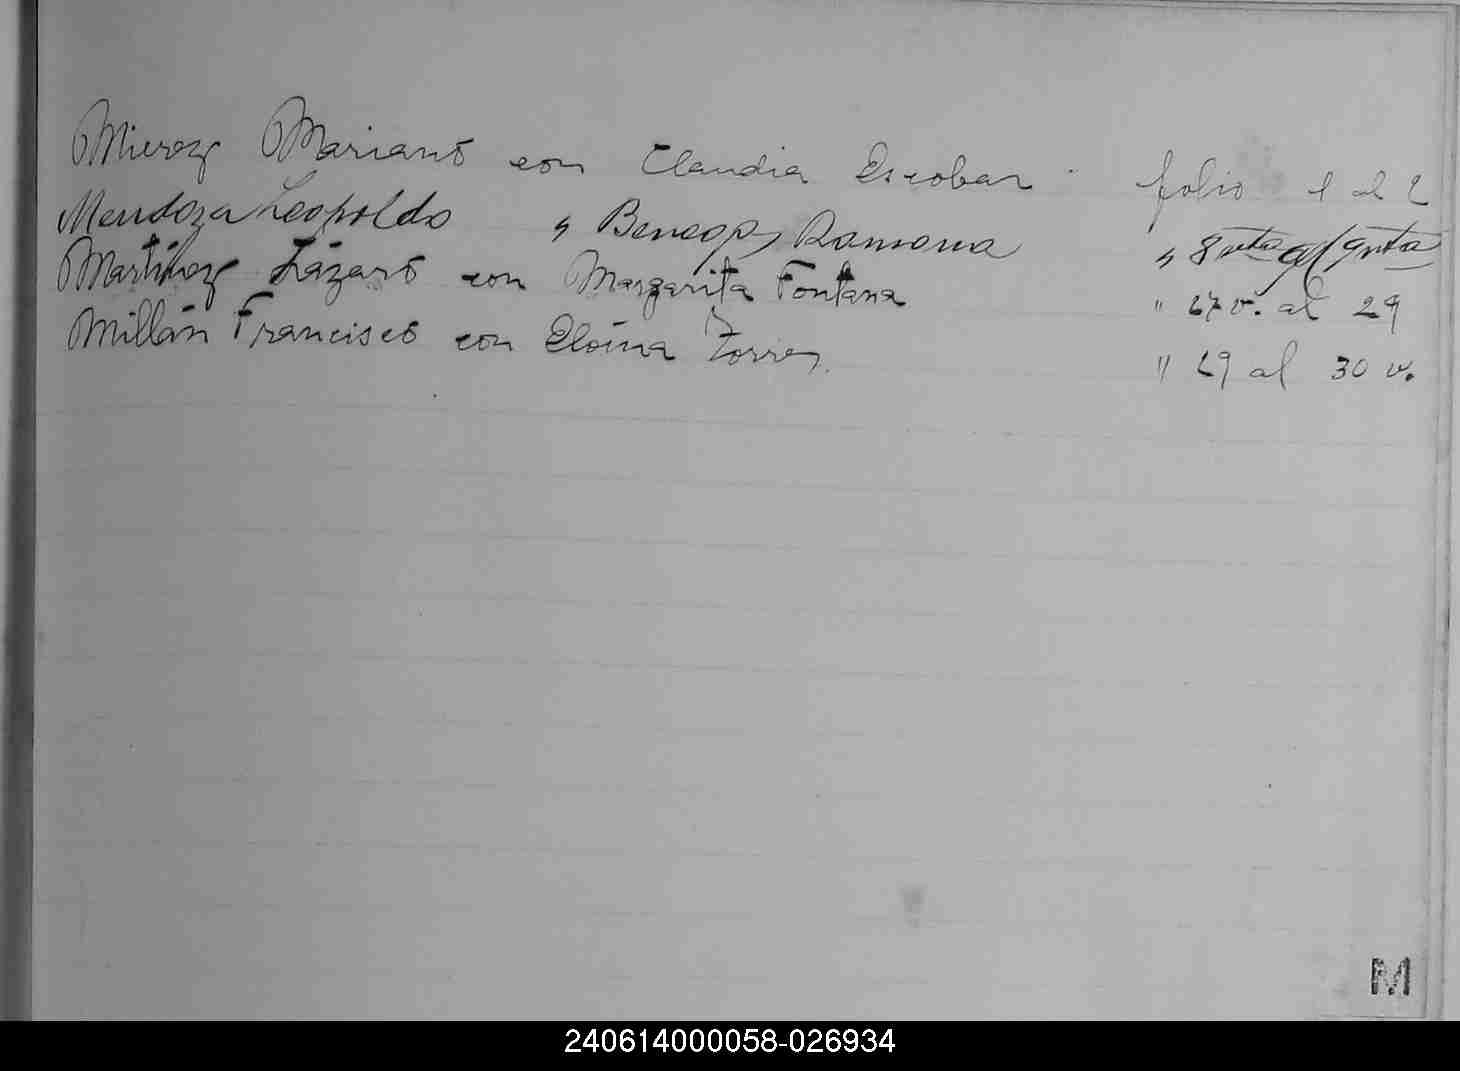 Mierez Mariano con Claudia Escobar folio 1 al 2
Mendoza Leopoldo " Ramona " 8 vta al 9 vta
Martínez Lázaro con Margarita Fontana " 27 v. al 29
Millán Francisco con Eloina Torres. " 29 al 30 v.
M
240614000058-026934